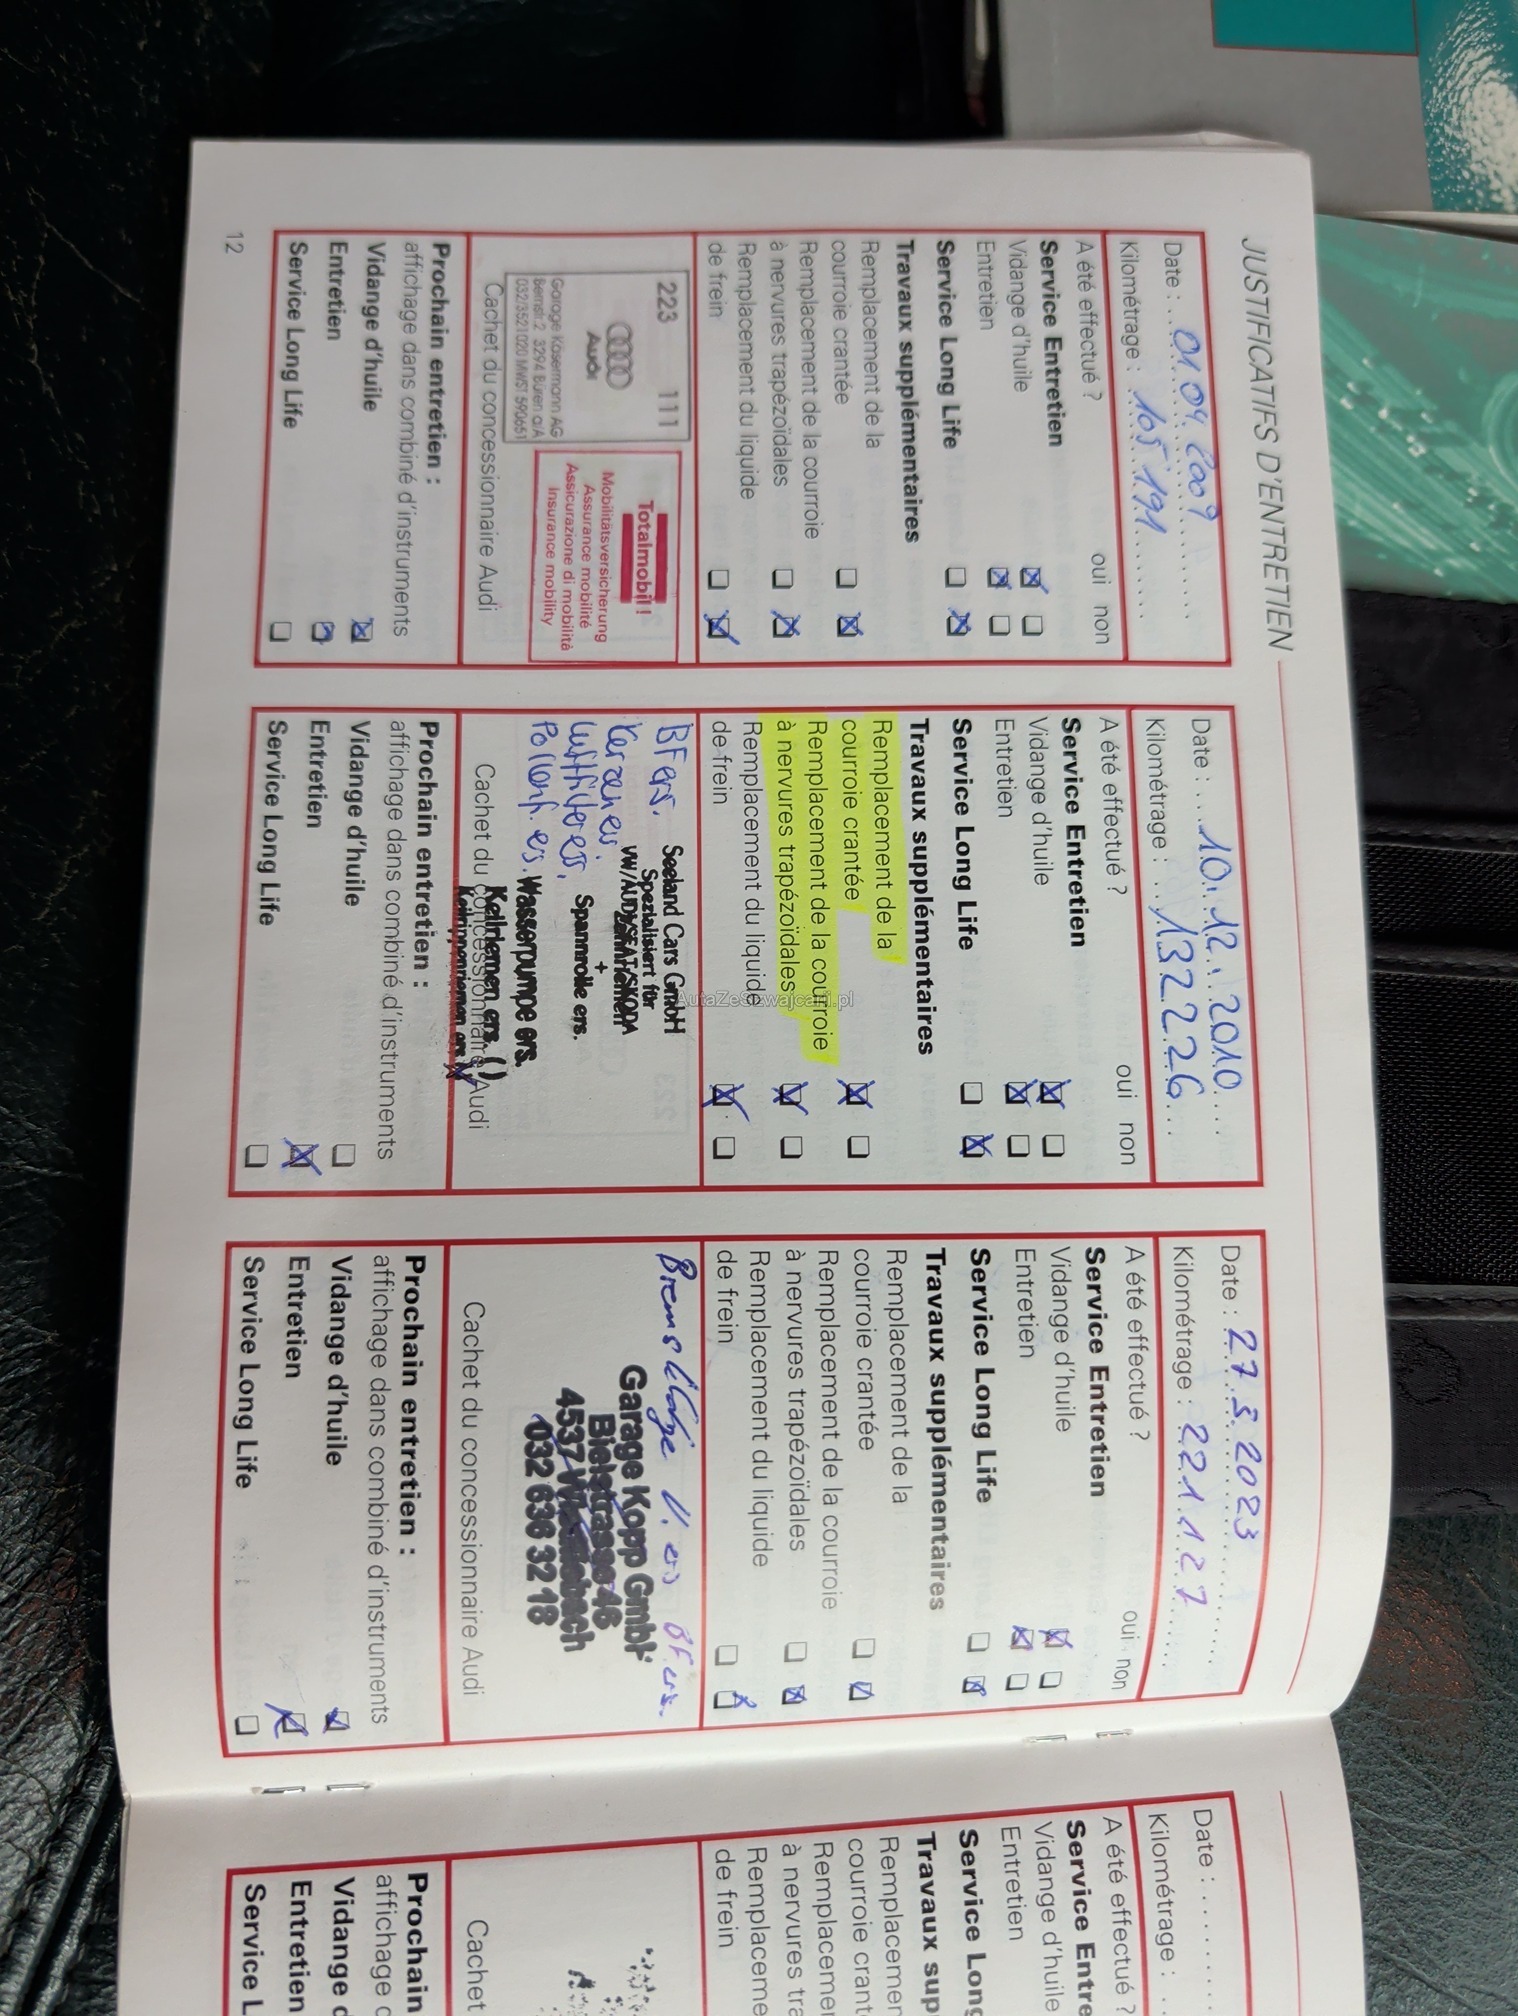 JUSTIFICATIFS D'ENTRETIEN
Date : 01 04. 2009
Kilométrage : 105'191
A été effectué ? oui non
Service Entretien
Vidange d'huile
Entretien
Service Long Life
Travaux supplémentaires
Remplacement de la
courroie crantée
Remplacement de la courroie
à nervures trapézoïdales
Remplacement du liquide
de frein
223 111
Audi
Garage Käsermann AG
Bernstr.2 3294 Büren a/A
032/3521020 MWST 590651
Totalmobil!
Mobilitätsversicherung
Assurance mobilité
Assicurazione di mobilità
Insurance mobility
Cachet du concessionnaire Audi
Prochain entretien :
affichage dans combiné d'instruments
Vidange d'huile
Entretien
Service Long Life
12
Date : 10. 12. 2010
Kilométrage : 132226
A été effectué ? oui non
Service Entretien
Vidange d'huile
Entretien
Service Long Life
Travaux supplémentaires
Remplacement de la
courroie crantée
Remplacement de la courroie
à nervures trapézoïdales
Remplacement du liquide
de frein
BF ers.
Kerzen ers.
Luftfilter ers.
Pollenf. ers.
Seeland Cars GmbH
Spezialisiert für
VW/AUDI/SEAT/SKODA
Zahnriemen
+
Spannrolle ers.
Wasserpumpe ers.
Keilriemen ers. ( )
Keilrippenriemen ers.
Cachet du concessionnaire Audi
Prochain entretien :
affichage dans combiné d'instruments
Vidange d'huile
Entretien
Service Long Life
AutaZeSzwajcarii.pl
Date : 27. 3. 2023
Kilométrage : 221.127
A été effectué ? oui non
Service Entretien
Vidange d'huile
Entretien
Service Long Life
Travaux supplémentaires
Remplacement de la
courroie crantée
Remplacement de la courroie
à nervures trapézoïdales
Remplacement du liquide
de frein
Bremsbeläge V. ers BF ers.
Garage Kopp GmbH
Bielstrasse 46
4537 Wiedlisbach
032 636 32 18
Cachet du concessionnaire Audi
Prochain entretien :
affichage dans combiné d'instruments
Vidange d'huile
Entretien
Service Long Life
Date :
Kilométrage :
A été effectué ?
Service Entre
Vidange d'huile
Entretien
Service Long
Travaux sup
Remplacemen
courroie crant
Remplacemer
à nervures tra
Remplaceme
de frein
Cachet
Prochain
affichage d
Vidange d
Entretien
Service L